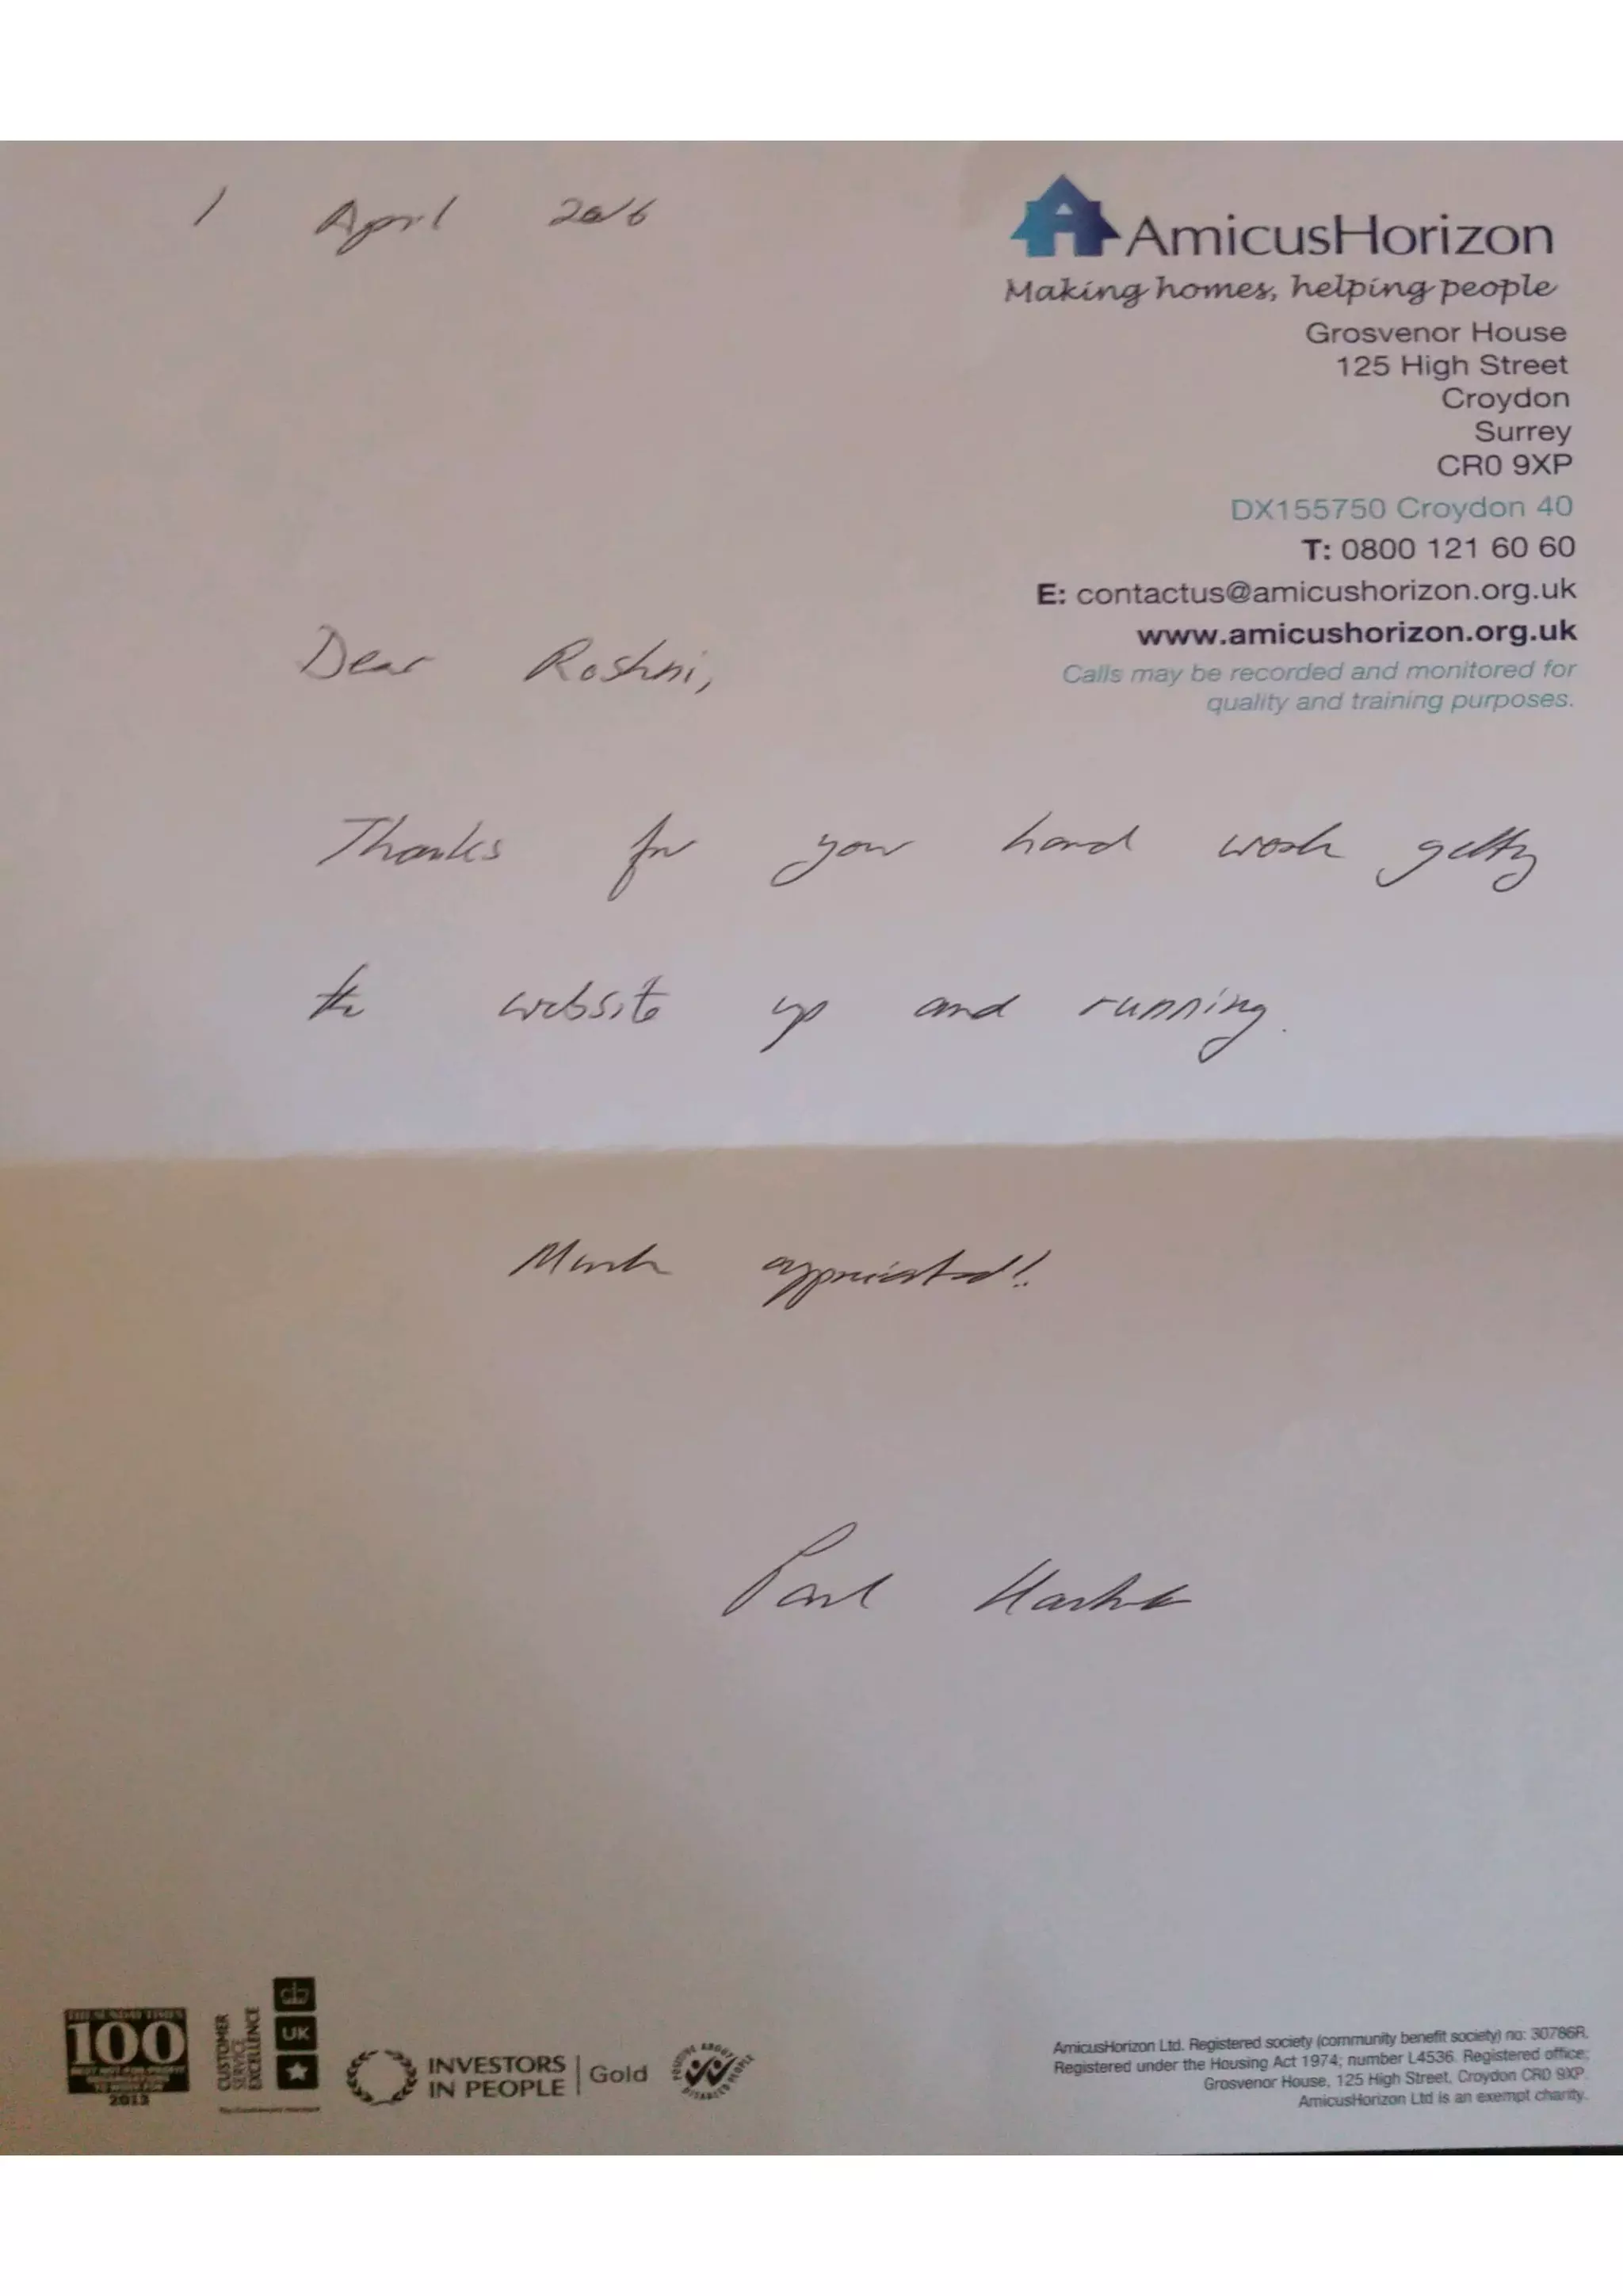 1 April 2016
AmicusHorizon
Making homes, helping people
Grosvenor House
125 High Street
Croydon
Surrey
CR0 9XP
DX155750 Croydon 40
T: 0800 121 60 60
E: contactus@amicushorizon.org.uk
www.amicushorizon.org.uk
Calls may be recorded and monitored for
quality and training purposes.
Dear Roshni,
Thanks for your hard work getting
the website up and running.
Much appreciated!!
Paul
THE SUNDAY TIMES
100
BEST NOT-FOR-PROFIT
ORGANISATIONS
TO WORK FOR
2013
CUSTOMER
SERVICE
EXCELLENCE
UK
INVESTORS
IN PEOPLE
Gold
POSITIVE ABOUT
DISABLED PEOPLE
AmicusHorizon Ltd. Registered society (community benefit society) no: 30786R.
Registered under the Housing Act 1974; number L4536. Registered office:
Grosvenor House, 125 High Street, Croydon CR0 9XP.
AmicusHorizon Ltd is an exempt charity.